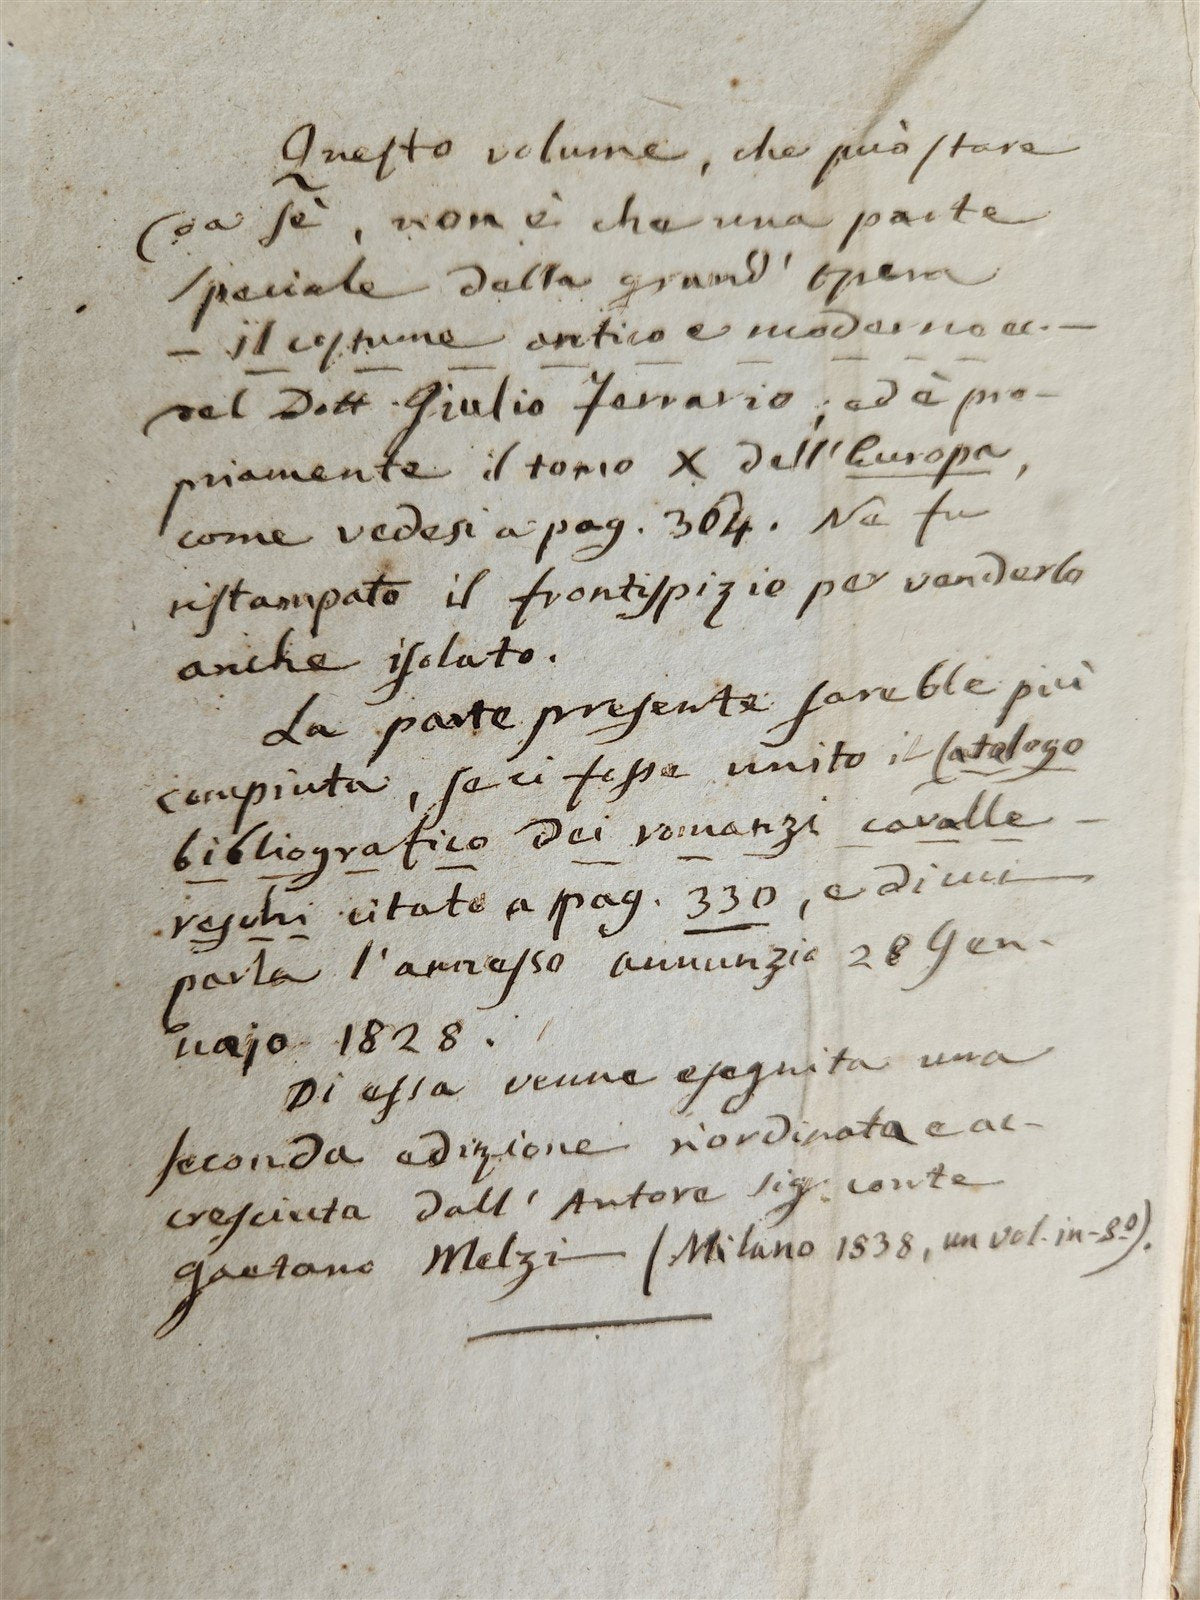 Questo volume, che può stare
da sè, non è che una parte
speciale della grand' opera
– il costume antico e moderno ec. –
del Dott. Giulio Ferrario, ed è pro-
priamente il tomo X dell'Europa,
come vedesi a pag. 364. Ne fu
ristampato il frontispizio per venderlo
anche isolato.
La parte presente sarebbe più
compiuta, se ci fosse unito il Catalogo
bibliografico dei romanzi cavalle-
reschi citato a pag. 330, e di cui
parla l'annesso annunzio 28 Gen-
najo 1828.
Di essa venne eseguita una
seconda edizione riordinata e ac-
cresciuta dall' Autore sig. conte
Gaetano Melzi (Milano 1838, un vol. in-8º).